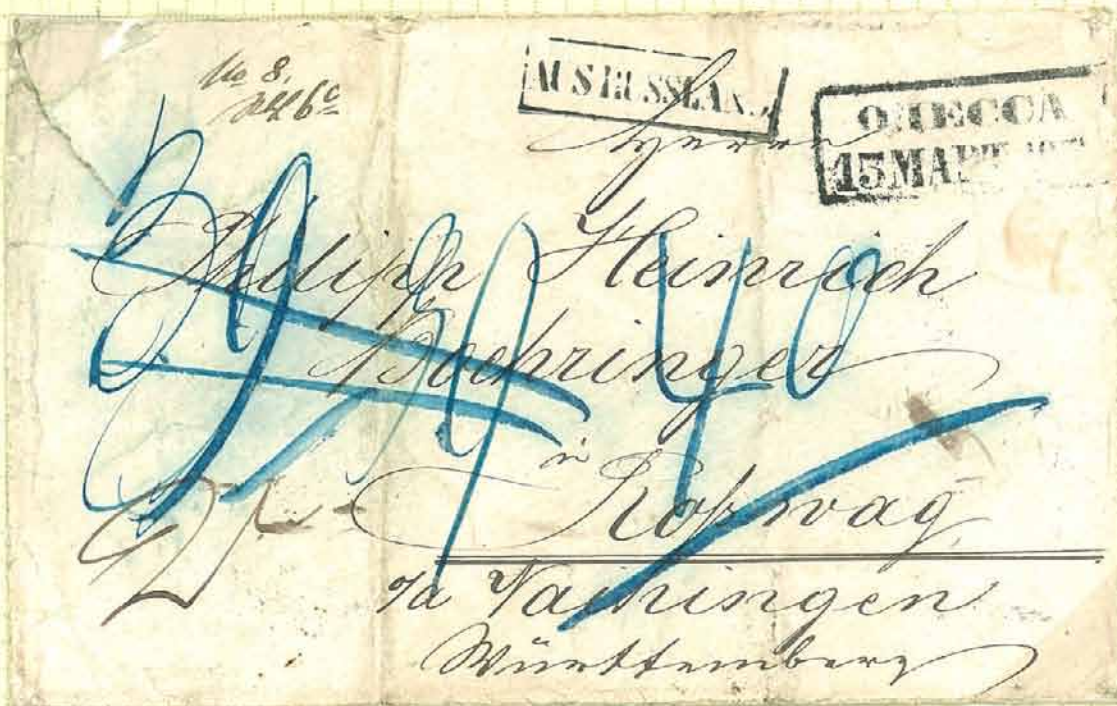 No 8.
AUS RUSSLAN
ОДЕССА
15 МАРТ
Herrn
Philipp Heinrich
Boehringer
in
Roßwag
o/a Vaihingen
Württemberg
40